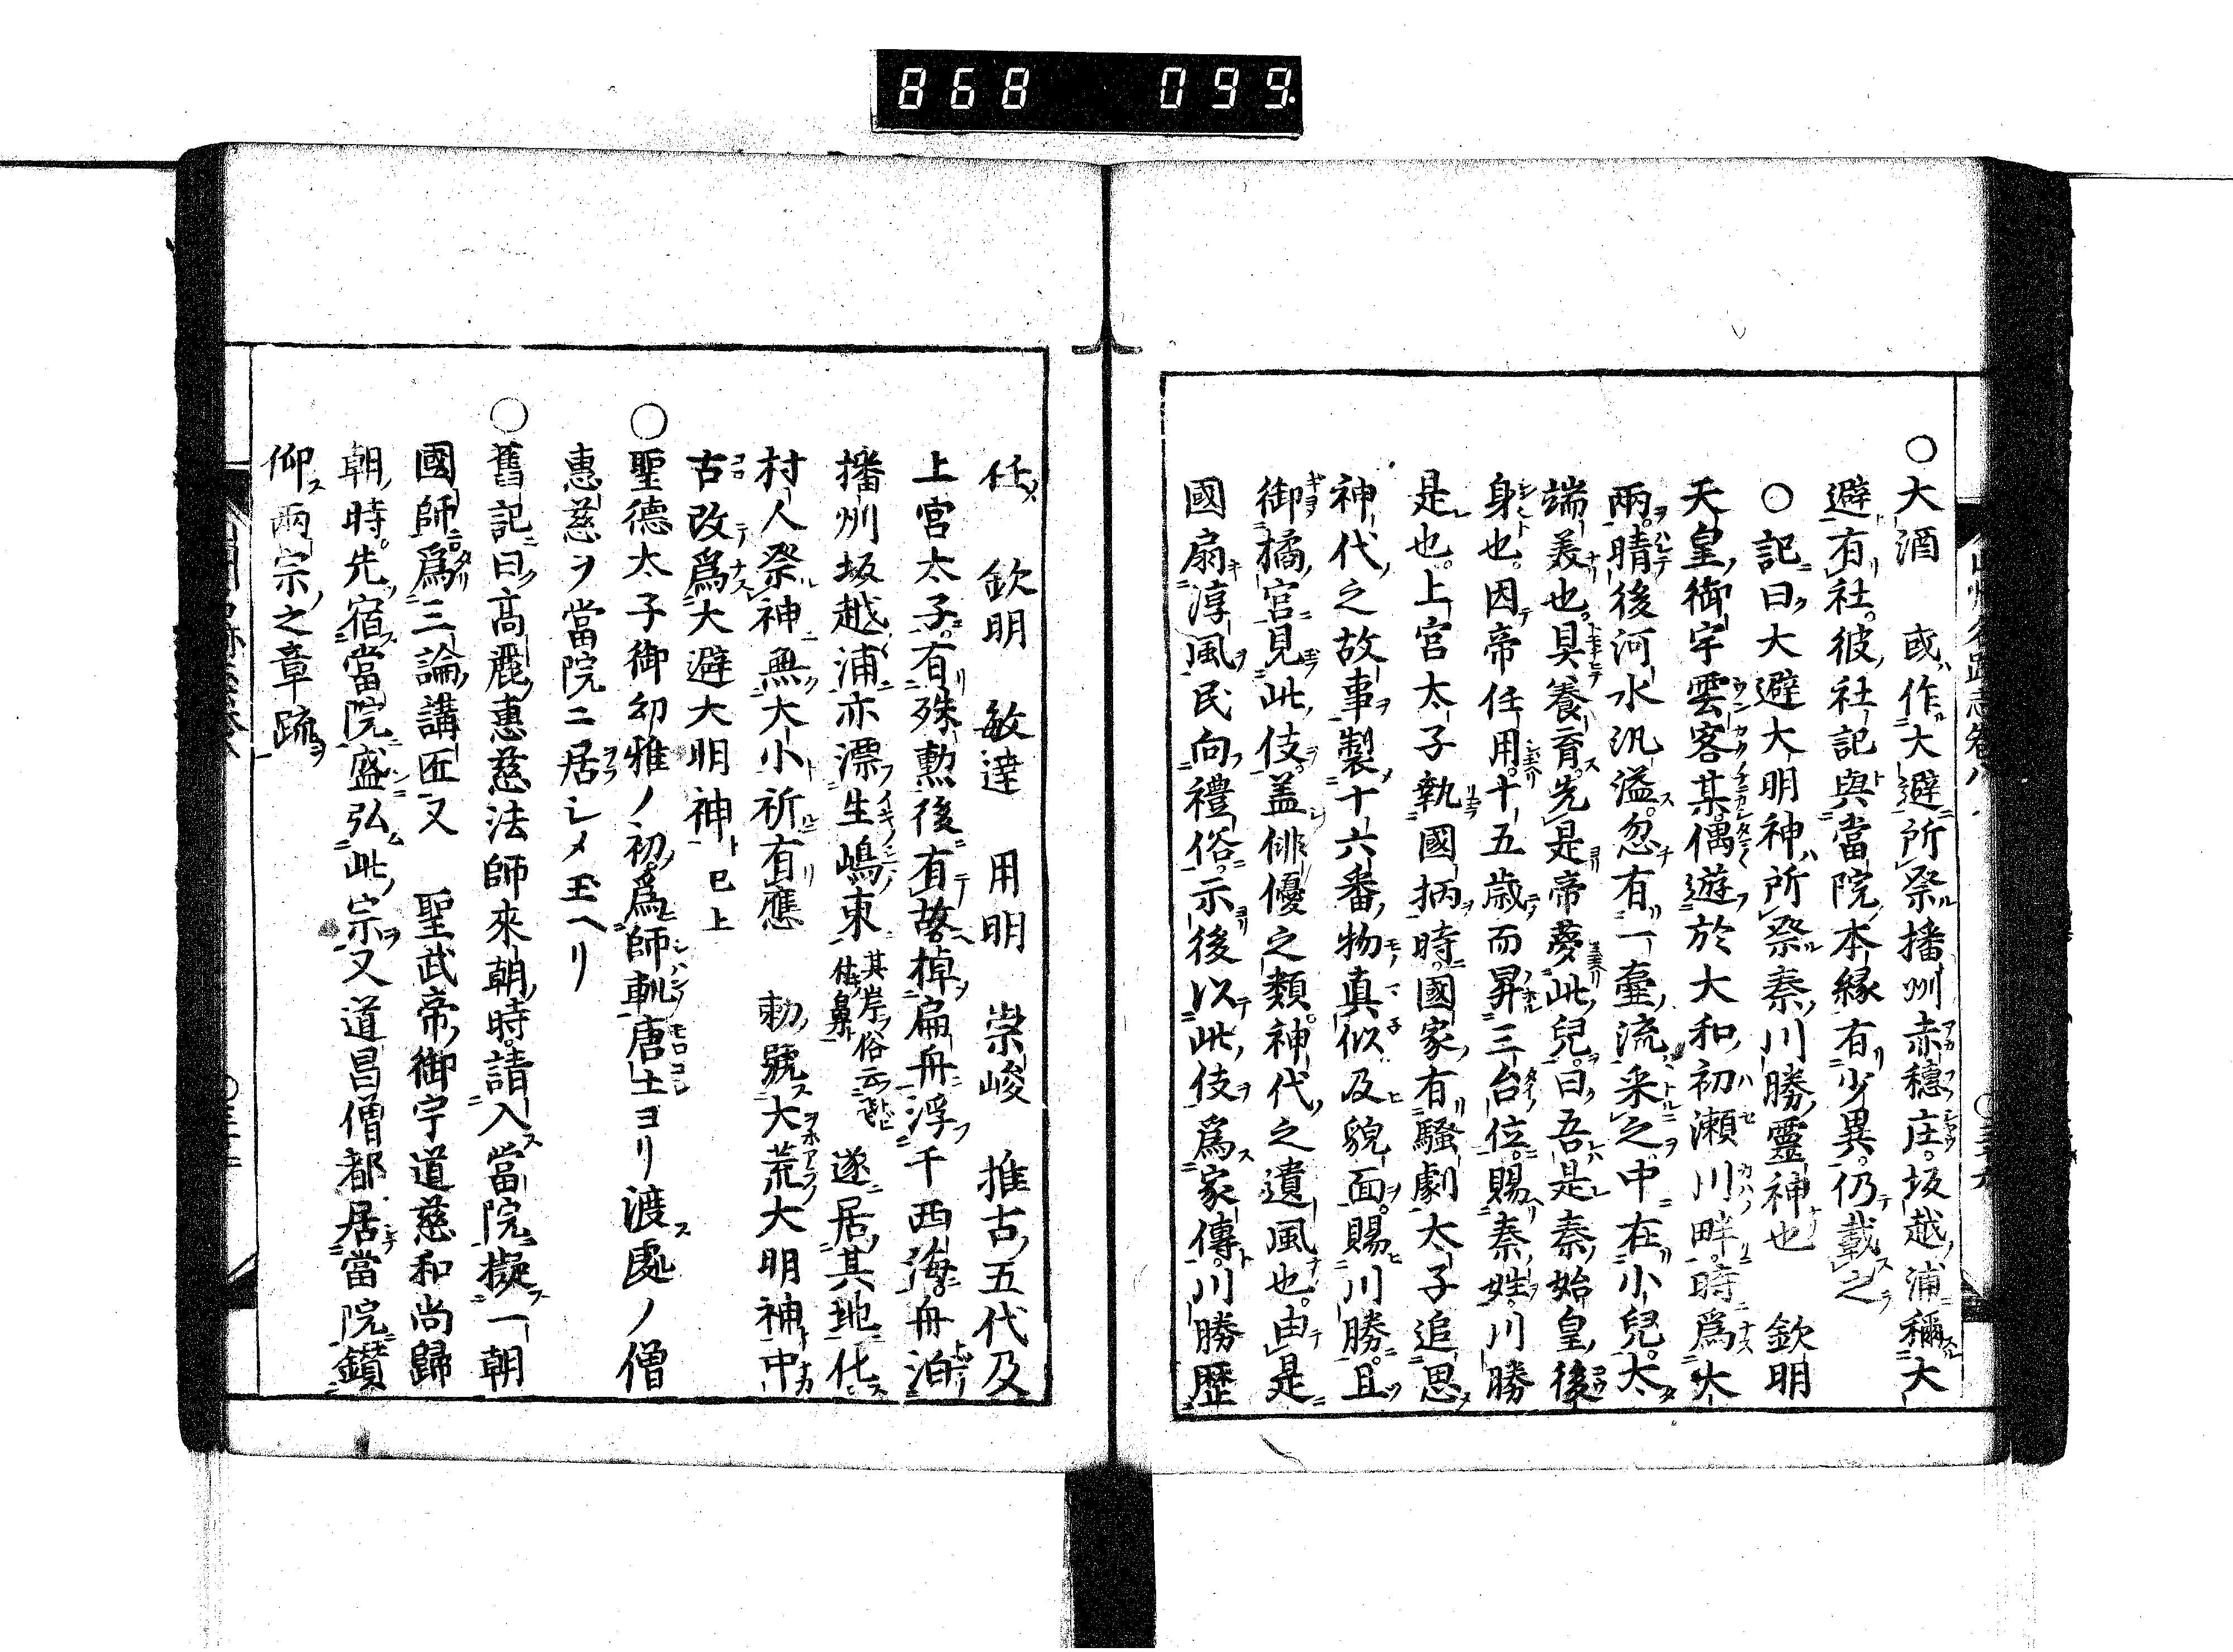 868 099.
○大酒 或作大避所祭播州赤穗庄。坂越浦稱大
避有社。彼社記與當院本縁有少異。仍載之
○記曰大避大明神所祭秦川勝靈神也 欽明
天皇御宇雲客某偶遊於大和初瀬川畔。時爲大
雨。晴後河水汎溢。忽有一壷流来之。中在小兒。太
端美也。具養育。先是帝夢此兒。曰吾是秦始皇後
身也。因帝任用。十五歳而昇三台位。賜秦姓。川勝
是也。上宮太子執國柄時。國家有騒劇太子追思
神代之故事製十六番物真似及貌面。賜川勝。且
御橘宮見此伎。盖俳優之類。神代之遺風也。由是
國扇淳風民向禮俗。示後以此伎爲家傳。川勝歴
任 欽明 敏達 用明 崇峻 推古五代及
上宮太子。有殊勲後有故棹扁舟浮于西海。舟泊
播州坂越浦亦漂生嶋東 其岸俗云 遂居其地化
村人祭神無大小祈有應 勅號大荒大明神中
古改爲大避大明神 已上
○聖德太子御幼雅ノ初爲師軌唐土ヨリ渡處ノ僧
惠慈ヲ當院ニ居レメ玉ヘリ
○舊記曰高麗惠慈法師來朝時。請入當院擬一朝
國師爲三論講匠又 聖武帝御宇道慈和尚歸
朝時。先宿當院盛弘此宗又道昌僧都居當院鑚
仰兩宗之章疏